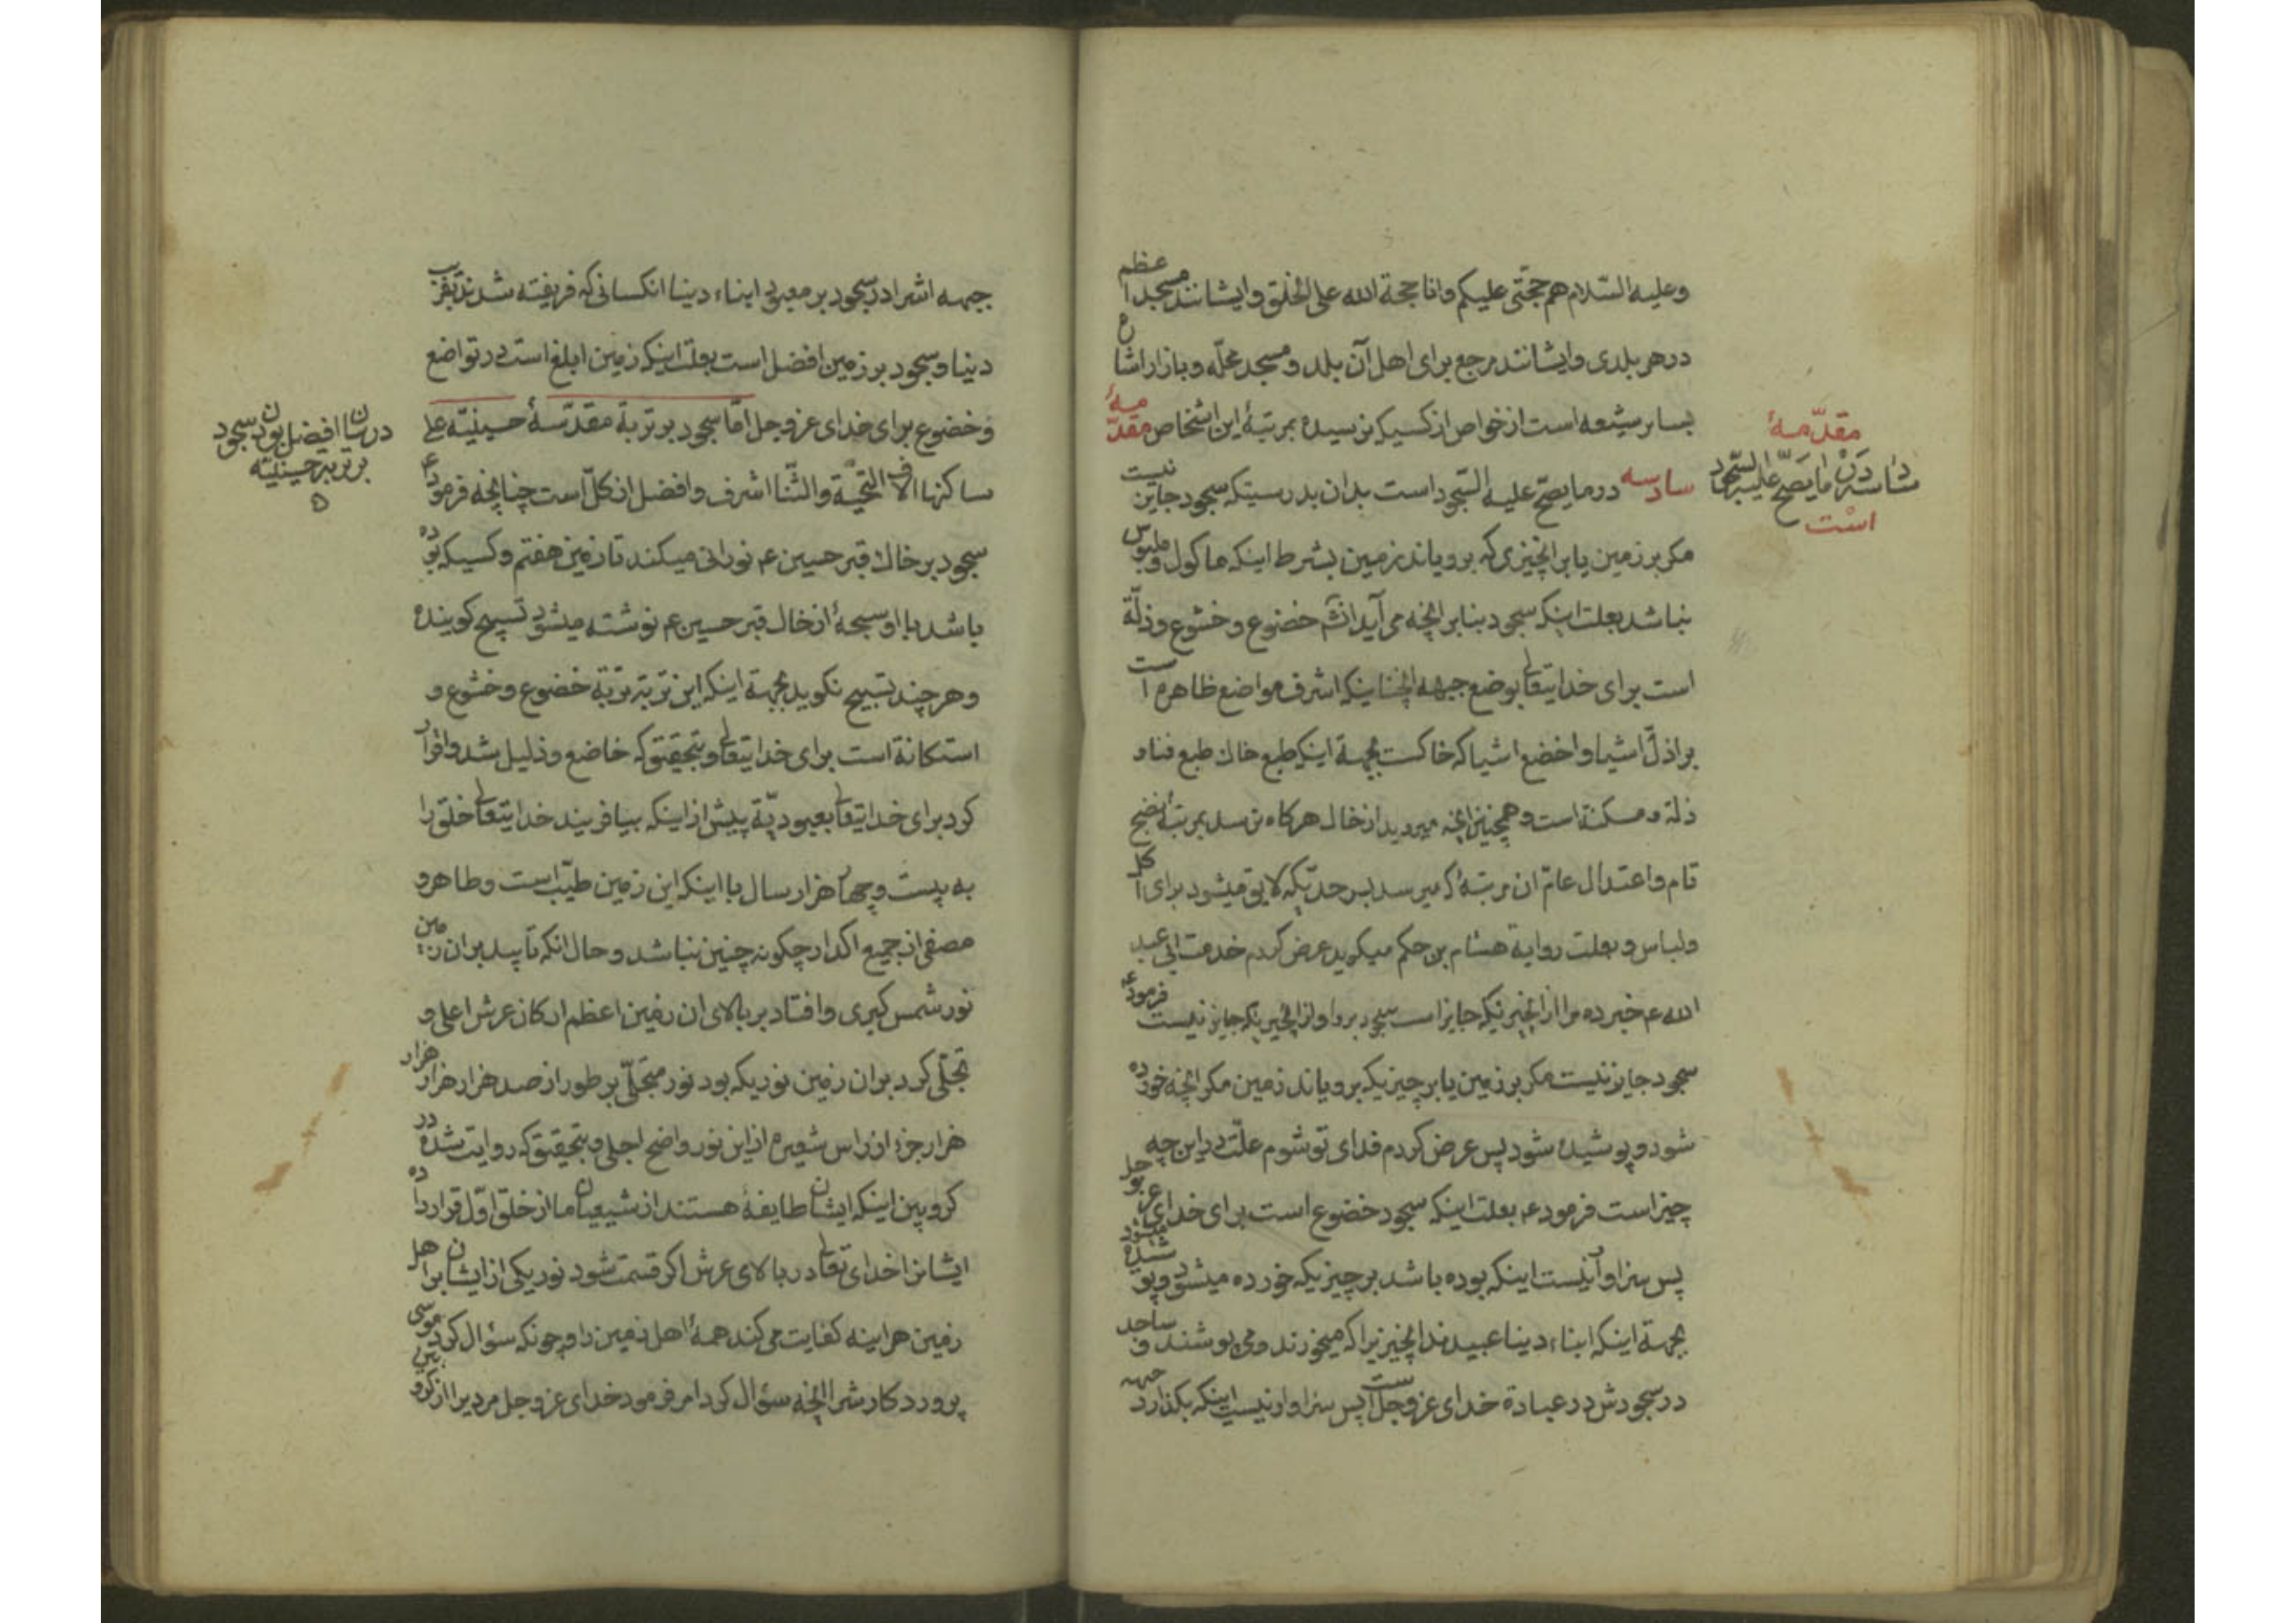 وعلیه السّلام هم حجّتی علیکم وانا حجة الله علی الخلق وایشانند مسجد اعظم
در هر بلدی وایشانند مرجع برای اهل آن بلد و مسجد محلّه و بازار اشاع
بسایر شیعه است از خواص از کسیکه نرسیده بمرتبهٔ این اشخاص مقدّمهٔ
سادسه در ما یصحّ علیه السّجود است بدان بدرستیکه سجود جایز نیست
مکر بر زمین یا بر انچیزی که برویاند زمین بشرط اینکه ماکول و ملبوس
نباشد بعلت اینکه سجود بنابر انچه می آید انشٓم خضوع و خشوع و ذلّة
است برای خدایتعالی بوضع جبهه انچنانیکه اشرف مواضع ظاهره است
بر اذلّ اشیا و اخضع اشیا که خاکست بجهة اینکه طبع خاک طبع فنا و
ذلة و مسکنة است و همچنین انچه میروید از خاک هرکاه نرسد بمرتبهٔ نضج
تام و اعتدال عامّ ان مرتبهٔ که میرسد بسر حدّیکه لایق میشود برای اکل
ولباس و بعلت روایة هشام بن حکم میکوید عرض کردم خدمت ابی عبد
الله ع خبر ده مرا از انچیزیکه جایز است سجود بر او و از انچیزیکه جایز نیست فرمود ع
سجود جایز نیست مکر بر زمین یا بر چیزیکه برویاند زمین مکر انچه خورده
شود و پوشیده شود پس عرض کردم فدای تو شوم علّت در این چه
چیز است فرمود ع بعلت اینکه سجود خضوع است برای خدای عز و جل
پس سزاوار نیست اینکه بوده باشد بر چیزیکه خورده میشود و پوشیده میشود
بجهة اینکه ابناء دینا عبیدند انچیزیرا که میخورند و می پوشند و ساجد
در سجودش در عبادة خدای عز و جل است پس سزاوار نیست اینکه بکذارد جبهه
مقدّمهٔ
سادسه در ما یصحّ علیه السّجود
است
جبهه اشرا در سجود بر معبود ابناء دینا انکسانی که فریفته شدند بفریب
دینا و سجود بر زمین افضل است بعلت اینکه زمین ابلغ است در تواضع
و خضوع برای خدای عز و جل امّا سجود بر تربة مقدّسهٔ حسینیّه علی
ساکنها الاف التحیّة والثّنا اشرف و افضل از کلّ است چنانچه فرمود ع
سجود بر خاک قبر حسین ع نورانی میکند تا زمین هفتم و کسیکه بوده
باشد با او سبحهٔ از خاک قبر حسین ع نوشته میشود تسبیح کوینده
و هر چند تسبیح نکوید بجهة اینکه این تربة تربة خضوع و خشوع و
استکانة است برای خدایتعالی و بتحقیق که خاضع و ذلیل شد و اقرار
کرد برای خدایتعالی بعبودیّة پیش از اینکه بیافریند خدایتعالی خلق را
به بیست و چهار هزار سال با اینکه این زمین طیّب است و طاهر و
مصفی از جمیع اکدار چکونه چنین نباشد و حال انکه تابید بر ان زمین
نور شمس کبری و افتاد بر بالای ان زمین اعظم ارکان عرش اعلی و
تجلّی کرد بر ان زمین نوریکه بود نور متجلّی بر طور از صد هزار هزار هزار
هزار جزء از راس شعیره از این نور واضح اجلی و بتحقیق که روایت شده در
کروبین اینکه ایشان طایفهٔ هستند از شیعیان ما از خلق اوّل قرار داده
ایشانرا خدای تعالی در بالای عرش اکر قسمت شود نور یکی از ایشان بر اهل
زمین هر اینه کفایت می کند همهٔ اهل زمین را و چونکه سؤال کرد موسی
پروردکارشرا انچه سؤال کرد امر فرمود خدای عز و جل مردیرا از کروبین
در بیان افضل بودن سجود
بر تربه حسینیّه